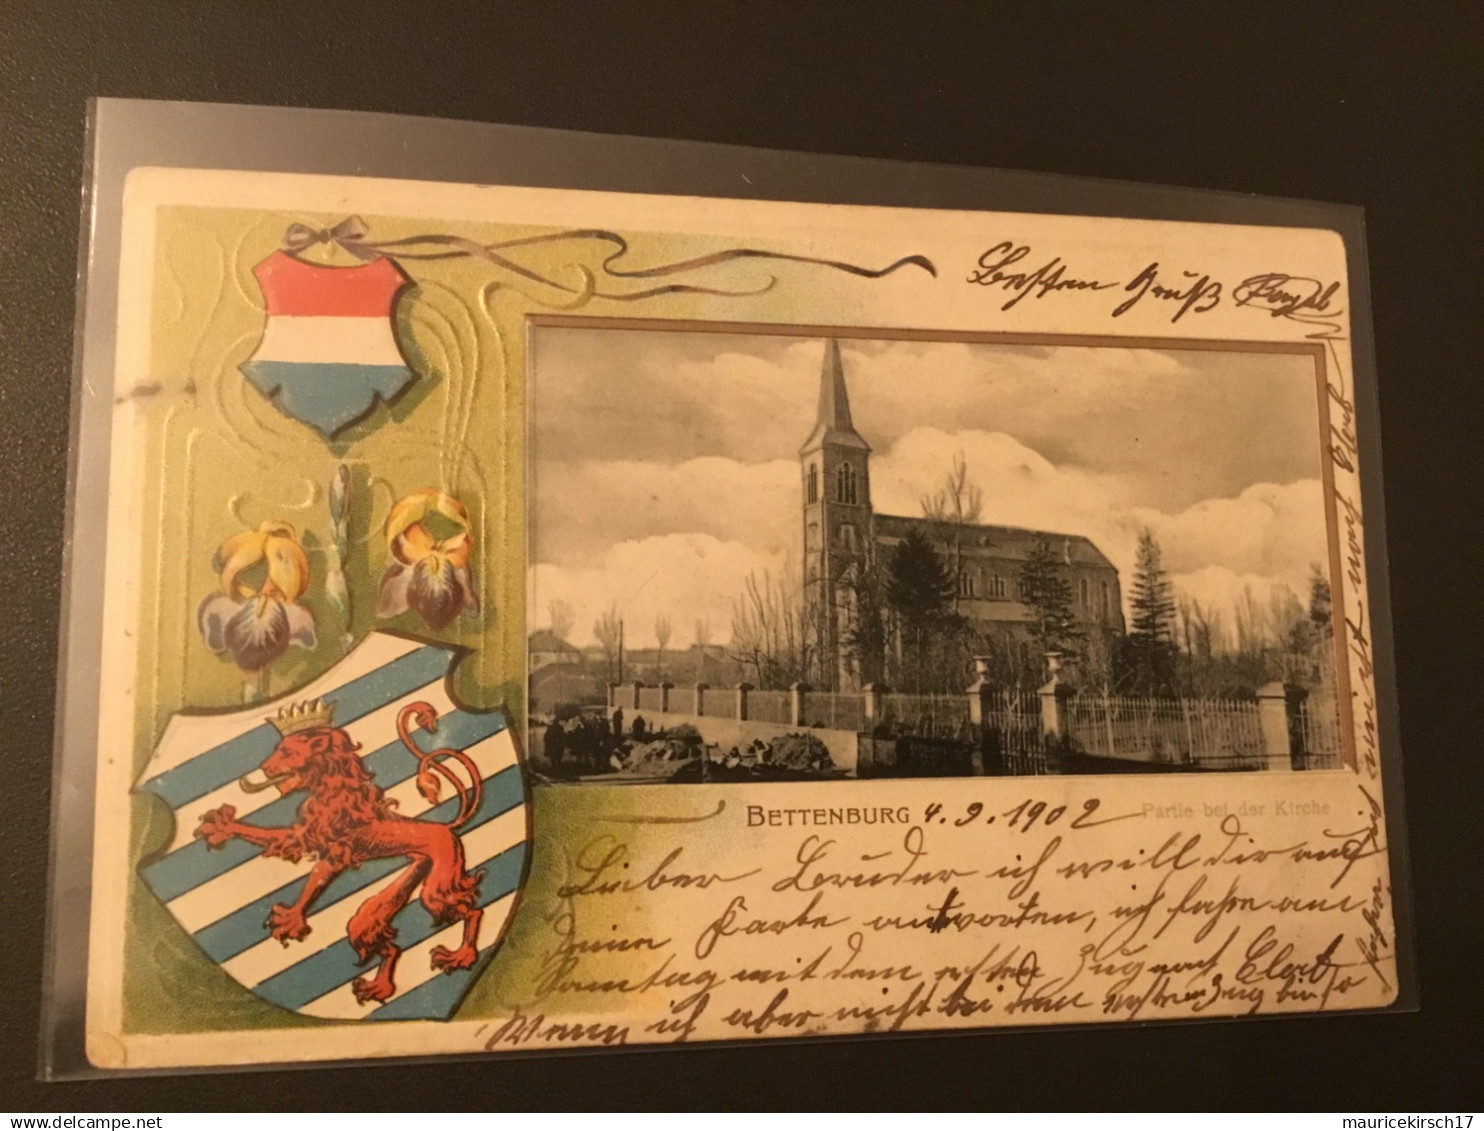 Besten Gruß
BETTENBURG 4.9.1902 Partie bei der Kirche
Lieber Bruder ich will dir auf
deine Karte antworten, ich fahre am
Samtag mit dem ersten Zug nach Clerf
Wenn ich aber nicht bei dem ersten Zug bin so
fahre ich nicht nach Clerf
delcampe.net
mauricekirsch17